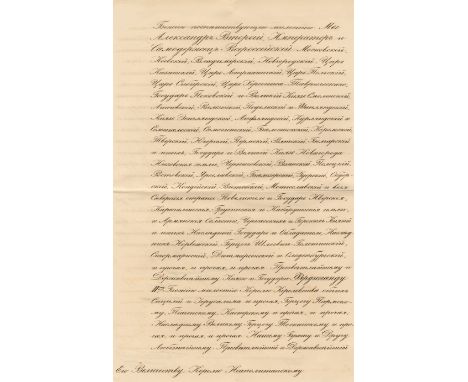 Божіею поспѣшествующею милостію Мы
Александръ Вторый, Императоръ и
Самодержецъ Всероссійскій, Московскій,
Кіевскій, Владимірскій, Новгородскій, Царь
Казанскій, Царь Астраханскій, Царь Польскій,
Царь Сибирскій, Царь Херсониса Таврическаго,
Государь Псковскій и Великій Князь Смоленскій,
Литовскій, Волынскій, Подольскій и Финляндскій,
Князь Эстляндскій, Лифляндскій, Курляндскій и
Семигальскій, Самогитскій, Бѣлостокскій, Корельскій,
Тверскій, Югорскій, Пермскій, Вятскій, Болгарскій
и иныхъ; Государь и Великій Князь Новагорода
Низовскія земли, Черниговскій, Рязанскій, Полоцкій,
Ростовскій, Ярославскій, Бѣлозерскій, Удорскій, Обдор-
скій, Кондійскій, Витебскій, Мстиславскій и всея
Сѣверныя страны Повелитель и Государь Иверскія,
Карталинскія, Грузинскія и Кабардинскія земли
и Армянскія Области, Черкасскихъ и Горскихъ Князей
и иныхъ Наслѣдный Государь и Обладатель, Наслѣд-
никъ Норвежскій, Герцогъ Шлезвигъ-Голстинскій,
Стормарнскій, Дитмарсенскій и Олденбургскій,
и прочая, и прочая, и прочая. Пресвѣтлѣйшему и
Державнѣйшему Князю и Государю Фердинанду
Божіею милостію Королю Королевства обѣихъ
Сицилій и Іерусалима и прочая, Герцогу Пармско-
му, Піаченскому, Кастрскому и прочая, и прочая,
Наслѣдному Великому Герцогу Тосканскому и про-
чая и прочая и прочая. Нашему Брату и Другу
Любезнѣйшему. Пресвѣтлѣйшій и Державнѣйшій
Его Величеству, Королю Неаполитанскому.